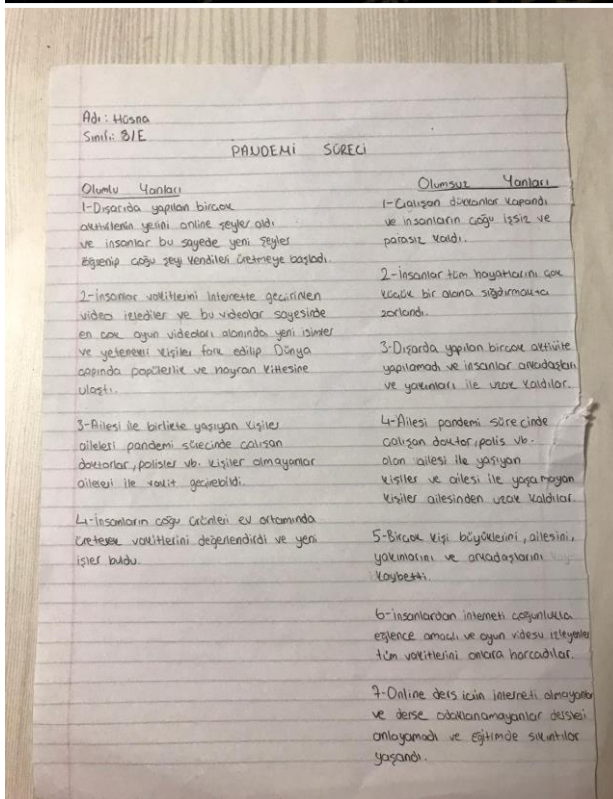 Adı: Hüsna
Sınıfı: 8/E
PANDEMİ SÜRECİ
Olumlu Yanları
1-Dışarıda yapılan bircok
aktivitenin yerini online şeyler aldı
ve insanlar bu sayede yeni şeyler
öğrenip çoğu şeyi kendileri üretmeye başladı.
2-insanlar vakitlerini internette geçirirken
video izlediler ve bu videolar sayesinde
en çok oyun videoları alanında yeni isimler
ve yetenekli kişiler fark edilip Dünya
çapında popülerlik ve hayran kitlesine
ulaştı.
3-Ailesi ile birlikte yaşıyan kişiler
aileleri pandemi sürecinde calışan
doktorlar, polisler vb. kişiler olmayanlar
ailelesi ile vakit geçirebildi.
4-insanların çoğu ürünleri ev ortamında
üreterek vakitlerini değerlendirdi ve yeni
işler buldu.
Olumsuz Yanları
1-Çalışan dükkanlar kapandı
ve insanların çoğu işsiz ve
parasız kaldı.
2-insanlar tüm hayatlarını çok
küçük bir alana sığdırmakta
zorlandı.
3-Dışarda yapılan bircok aktivite
yapılamadı ve insanlar arkadaşları
ve yakınları ile uzak kaldılar.
4-Ailesi pandemi sürecinde
çalışan doktor, polis vb.
olan ailesi ile yaşıyan
kişiler ve ailesi ile yaşamayan
kişiler ailesinden uzak kaldılar.
5-Bircok kişi büyüklerini, ailesini,
yakınlarını ve arkadaşlarını
kaybetti.
6-insanlardan interneti çoğunlukla
eğlence amaçlı ve oyun videsu izleyenler
tüm vakitlerini onlara harcadılar.
7-Online ders için interneti olmayanlar
ve derse odaklanamayanlar dersleri
anlayamadı ve eğitimde sıkıntılar
yaşandı.